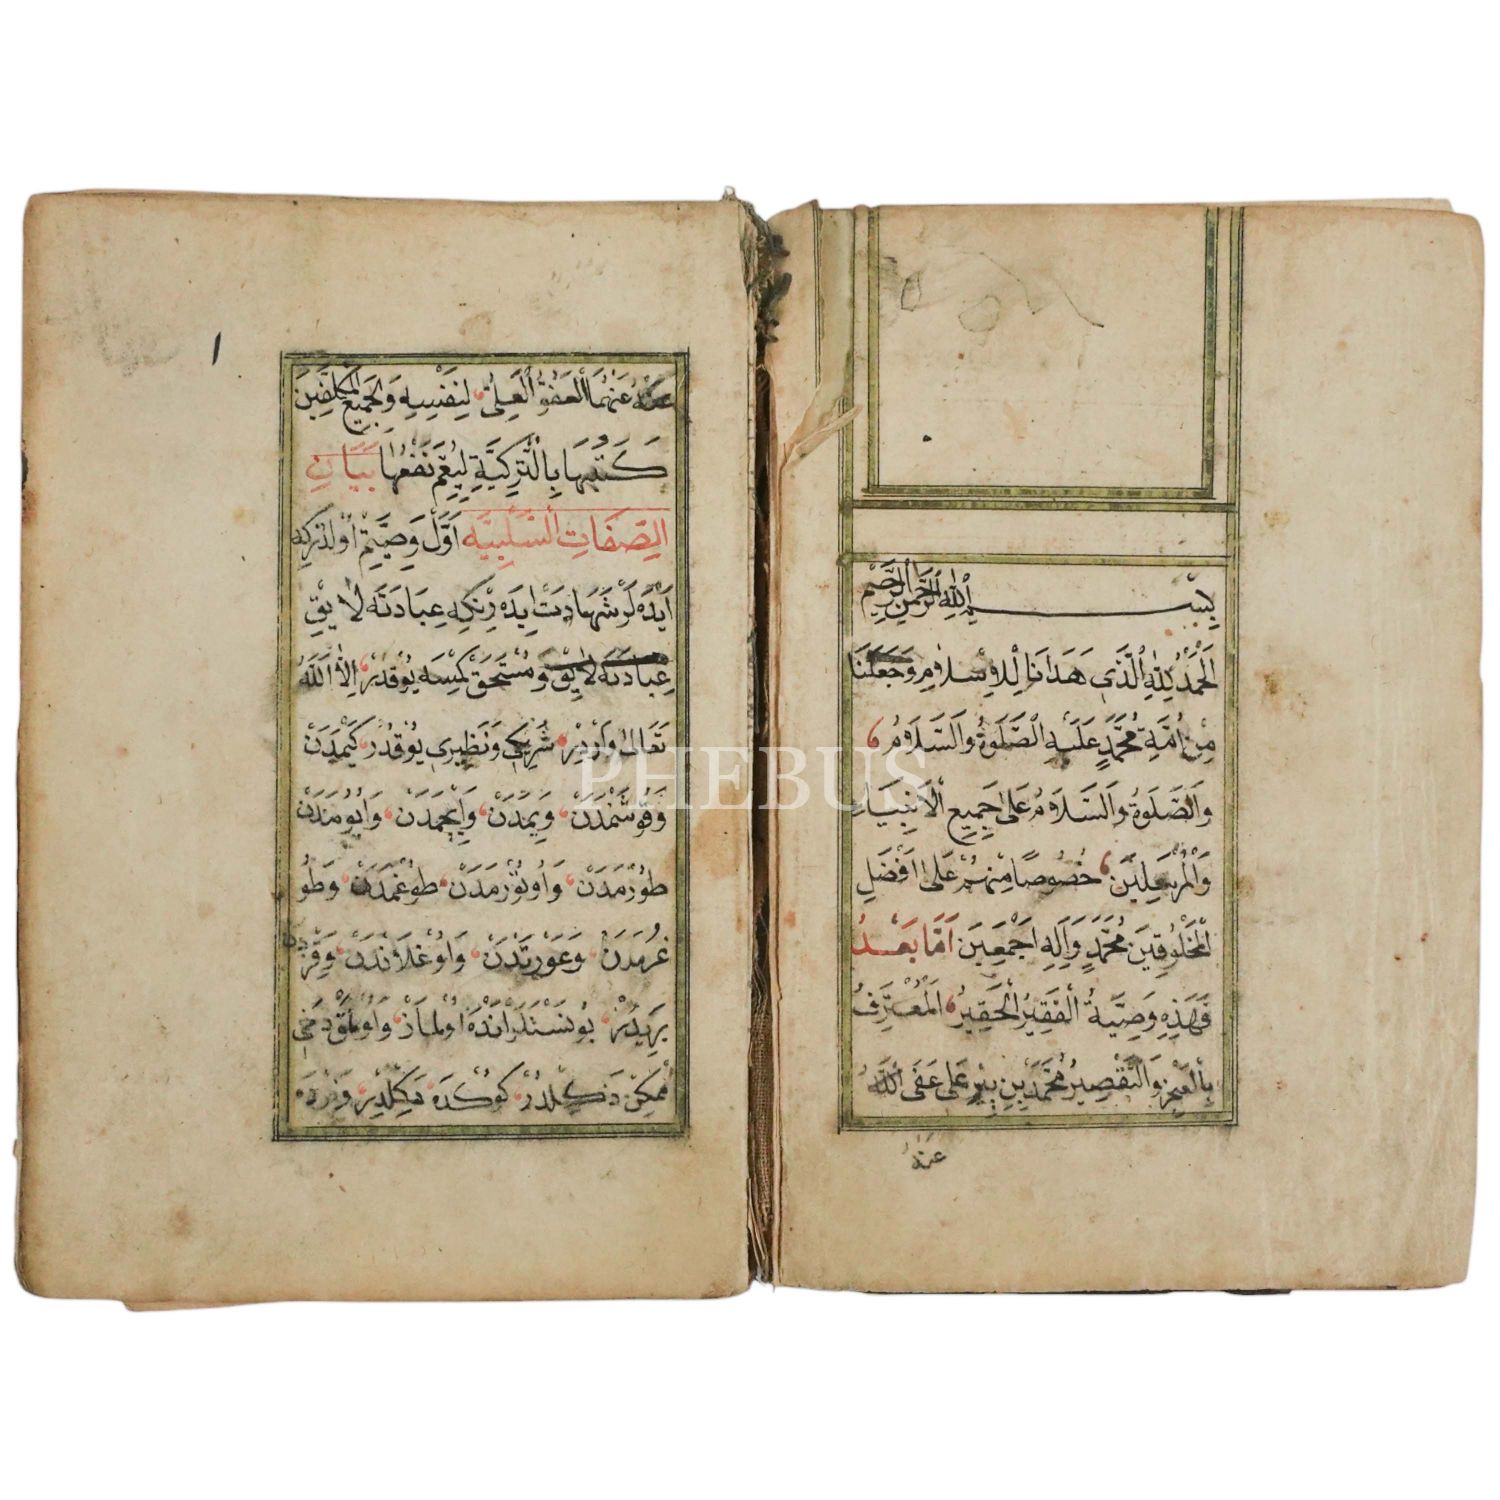 بِسْمِ اللّٰهِ الرَّحْمٰنِ الرَّحِيمِ
اَلْحَمْدُ لِلّٰهِ الَّذِي هَدَانَا لِلْاِسْلَامِ وَجَعَلَنَا
مِنْ اُمَّةِ مُحَمَّدٍ عَلَيْهِ الصَّلٰوةُ وَالسَّلَامُ
وَالصَّلٰوةُ وَالسَّلَامُ عَلٰى جَمِيعِ الْاَنْبِيَاءِ
وَالْمُرْسَلِينَ خُصُوصًا مِنْهُمْ عَلٰى اَفْضَلِ
الْمَخْلُوقِينَ مُحَمَّدٍ وَاٰلِهِ اَجْمَعِينَ اَمَّا بَعْدُ
فَهٰذِهِ وَصِيَّةُ الْفَقِيرِ الْحَقِيرِ الْمُعْتَرِفُ
بِالْعَجْزِ وَالتَّقْصِيرِ مُحَمَّدِ بْنِ پِيرْ عَلِى عَفَى اللّٰهُ
عَنْهُ
١
عَنْهُ عَنْهُمَا الْعَفُوُّ الْعَلِىُّ لِنَفْسِهِ وَلِجَمِيعِ الْمُكَلَّفِينَ
كَتَبْتُهَا بِالتُّرْكِيَّةِ لِيَعُمَّ نَفْعُهَا بَيَانِ
الصِّفَاتِ السَّلْبِيَّه اَوَّلْ وَصِيَّتِمْ اُولْدُرْكِه
اَيْدَه لَرْ شَهَادَتْ اِيدَه رِنْكِه عِبَادَتَه لَايِقْ
عِبَادَتَه لَايِقْ وَمُسْتَحَقْ كِمْسَه يُوقْدُرْ اِلَّا اللّٰهُ
تَعَالٰى وَارْدِرْ شَرِيكِى وَنَظِيرِى يُوقْدُرْ كَيْمَدَنْ
وَقُوشَنْمَدَنْ وَيَمَدَنْ وَاِيچْمَدَنْ وَاُيُومَدَنْ
طُورْمَدَنْ وَاُوتُورْمَدَنْ طُوغْمَدَنْ وَطُو
غُرْمَدَنْ وَعَوْرَتْدَنْ وَاُوغْلَانْدَنْ وَقِزْدَنْ
بَرِيدُرْ بُونَسْنَلَرْ اَنْدَه اُولْمَازْ وَاُولْمَقْ دَخِى
مُمْكِنْ دَكِلْدُرْ كُوكْدَه دَكِلْدِرْ وَيَرْدَه
PHEBUS